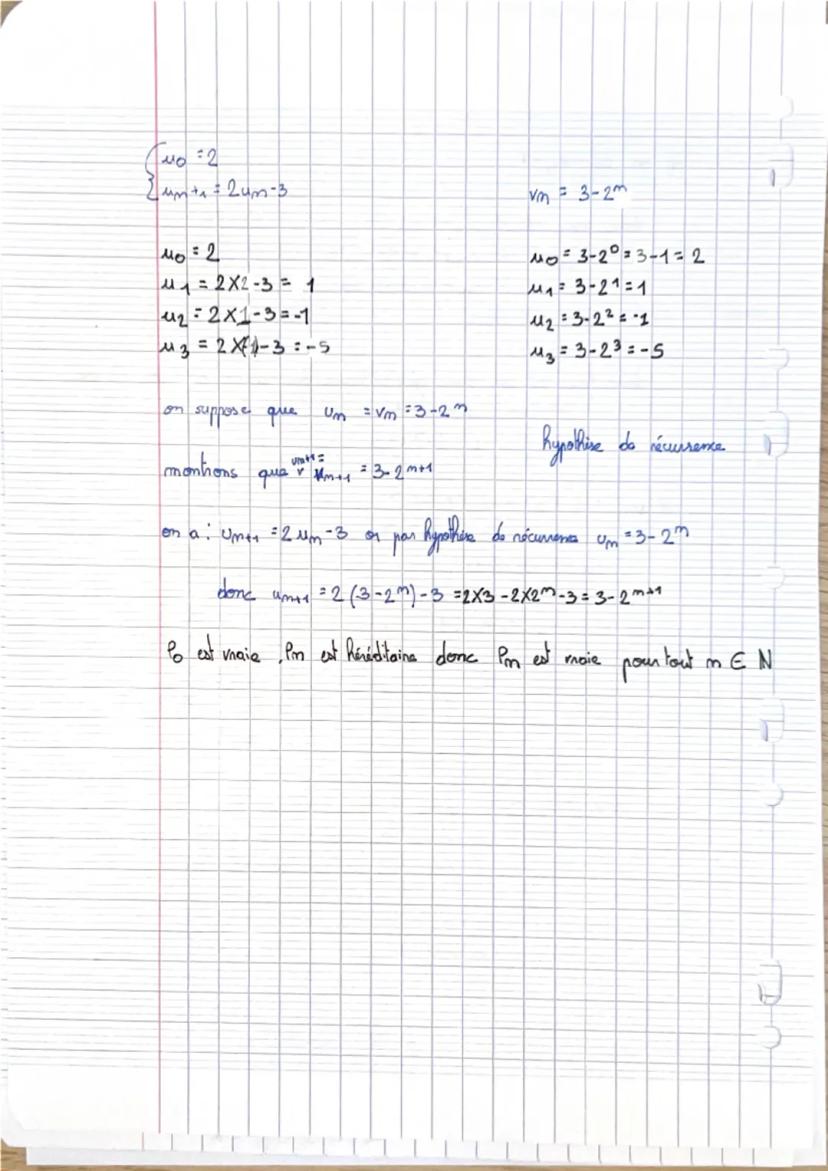 u0 = 2
un+1 = 2un-3
vn = 3-2^n
u0 = 2
u1 = 2×2-3 = 1
u2 = 2×1-3 = -1
u3 = 2×(-1)-3 = -5
u0 = 3-2^0 = 3-1 = 2
u1 = 3-2^1 = 1
u2 = 3-2^2 = -1
u3 = 3-2^3 = -5
on suppose que un = vn = 3-2^n
hypothèse de récurrence
montrons que vn+1 = un+1 = 3-2^n+1
on a : un+1 = 2un-3 or par hypothèse de récurrence un = 3-2^n
donc un+1 = 2(3-2^n)-3 = 2×3-2×2^n-3 = 3-2^n+1
P0 est vraie, Pn est héréditaire donc Pn est vraie pour tout n ∈ N